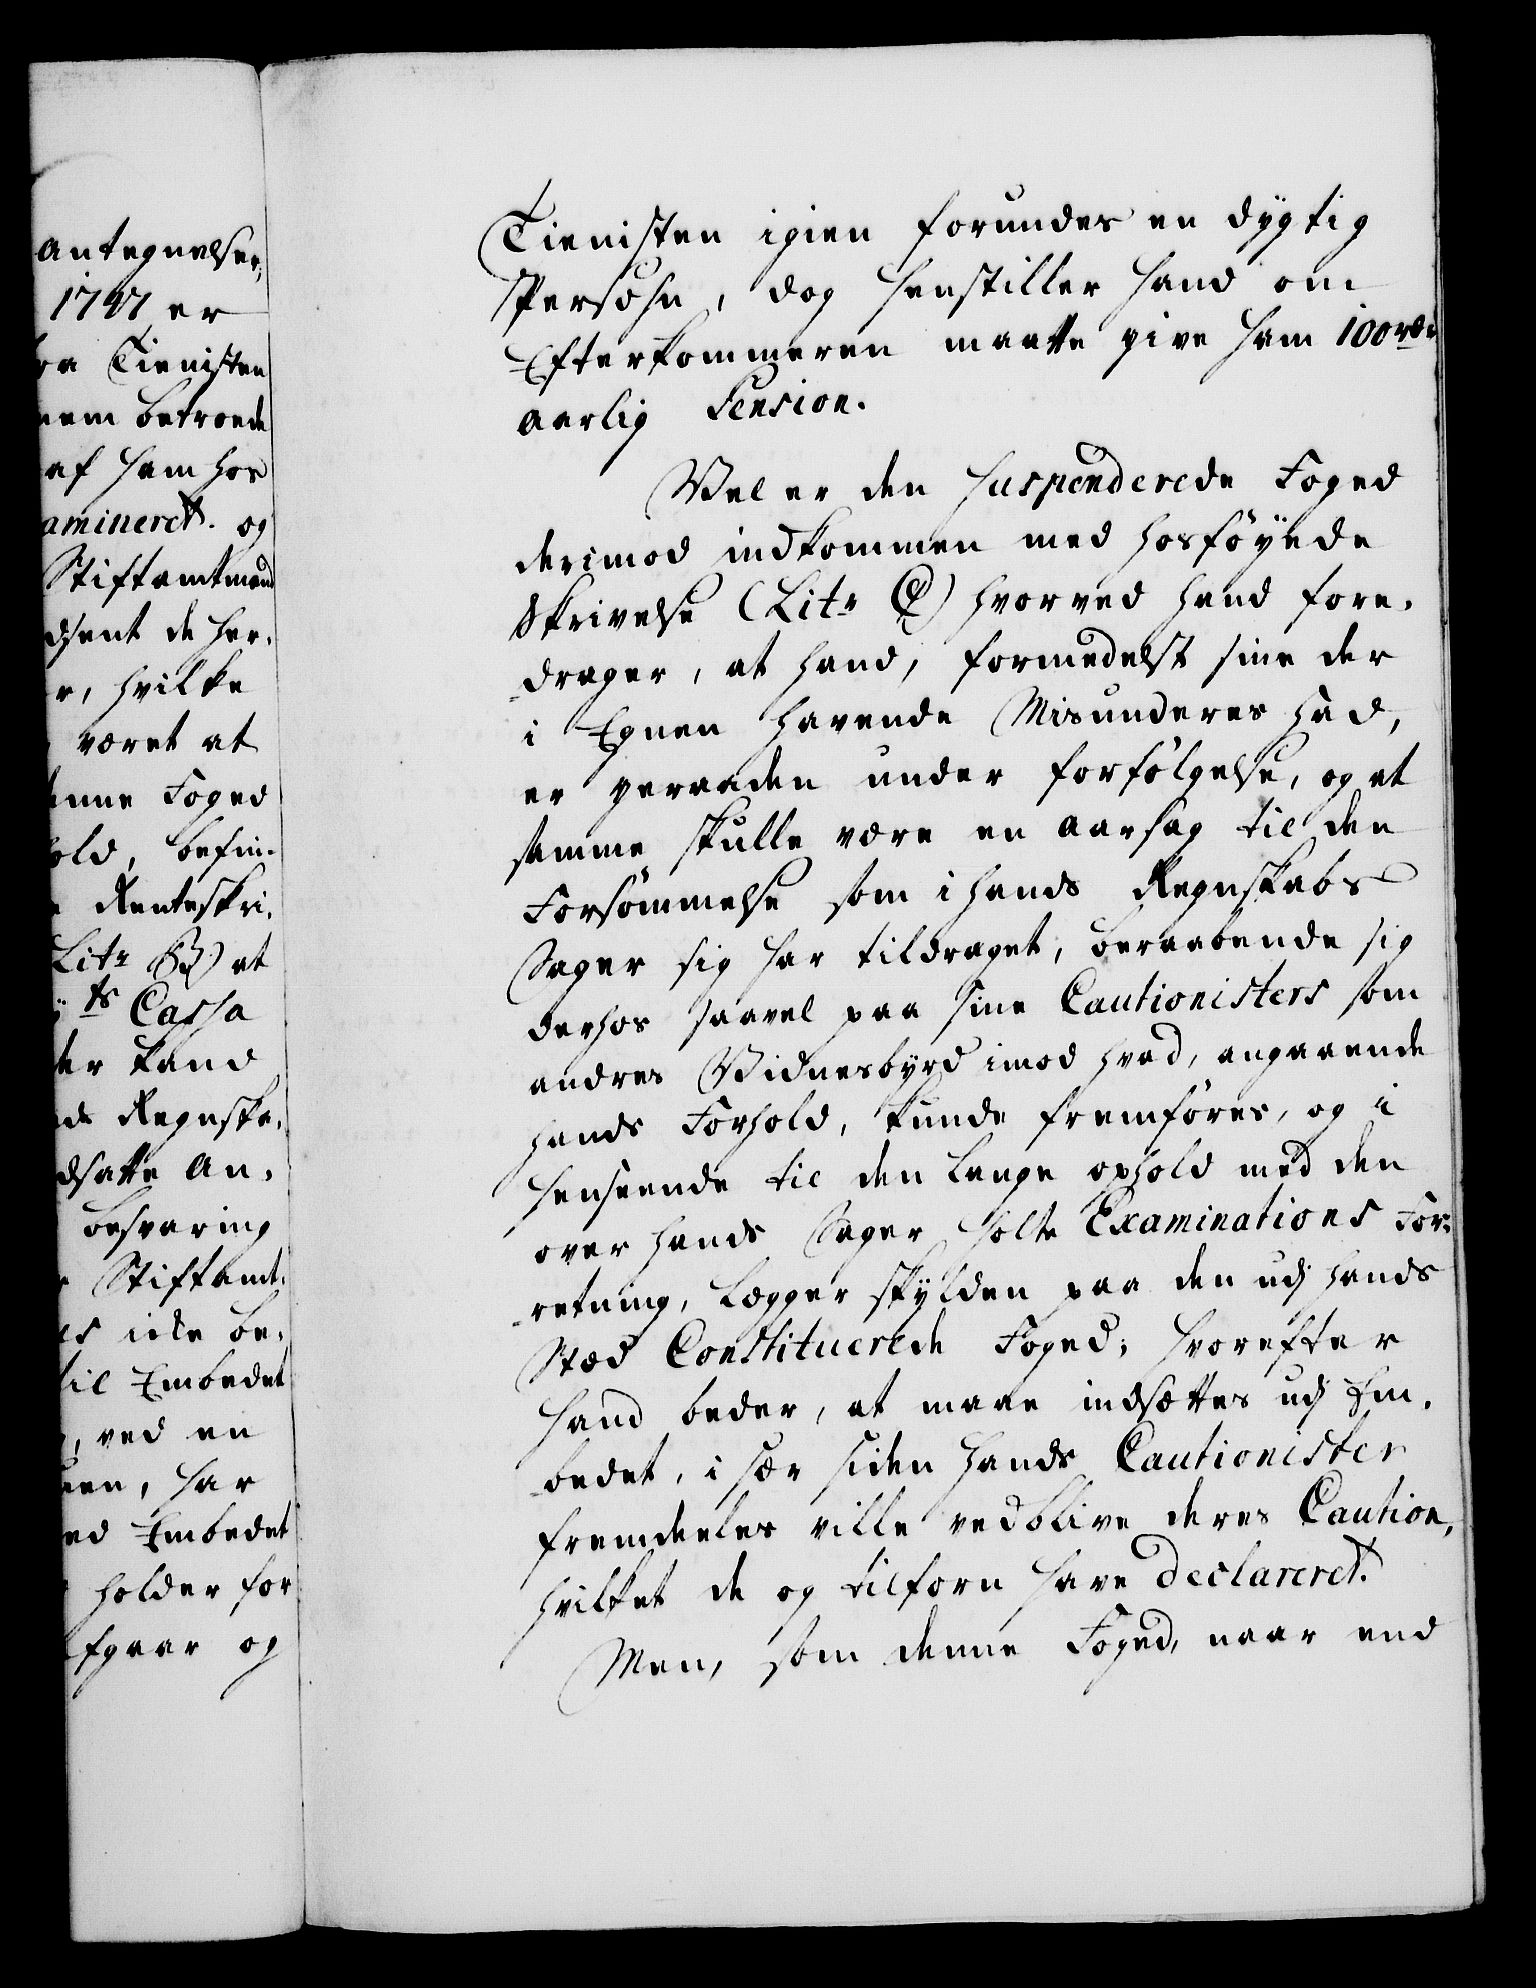 Antegnelser,
1747 er
fra Tienisten
nem betroede
af ham hos
amineret. og
Stiftamtmand
dsent de her,
r, hvilke
været at
denne Foged
hold, befin-
Renteskri,
Litr B) at
ts Cassa
der kand
ds Regnska,
dsatte An,
besvaring
Stiftamt,
es icke be,
til Embedet
, ved en
een, har
ed Embedet
holder for
fgaar og
Tienisten igien forundes en dygtig
Persohn, dog henstiller hand om
Efterkommeren maatte give ham 100 rdr
aarlig Pension.
Vel er den suspenderede Foged
derimod indkommen med hosföyede
Skrivelse (Litr C) hvorved hand fore,
drager, at hand, formedelst sine der
i Egnen havende Misunderes had,
er geraaden under forfölgelse, og at
samme skulle være en aarsag til den
Forsömmelse som i hands Regnskabs
Sager sig har tildraget, beraabende sig
derhos saavel paa sine Cautionisters som
andres Vidnesbyrd imod hvad, angaaende
hands Forhold, kunde fremföres, og i
henseende til den lange ophold med den
over hands Sager holte Examinations For,
retning, lægger skylden paa den udj hands
Stæd Constituerede Foged; hvorefter
hand beder, at maae indsættes udj Em,
bedet, i sær siden hands Cautionister
fremdeeles ville vedblive deres Caution,
hvilket de og tilforn have declareret.
Men, som denne Foged, naar end